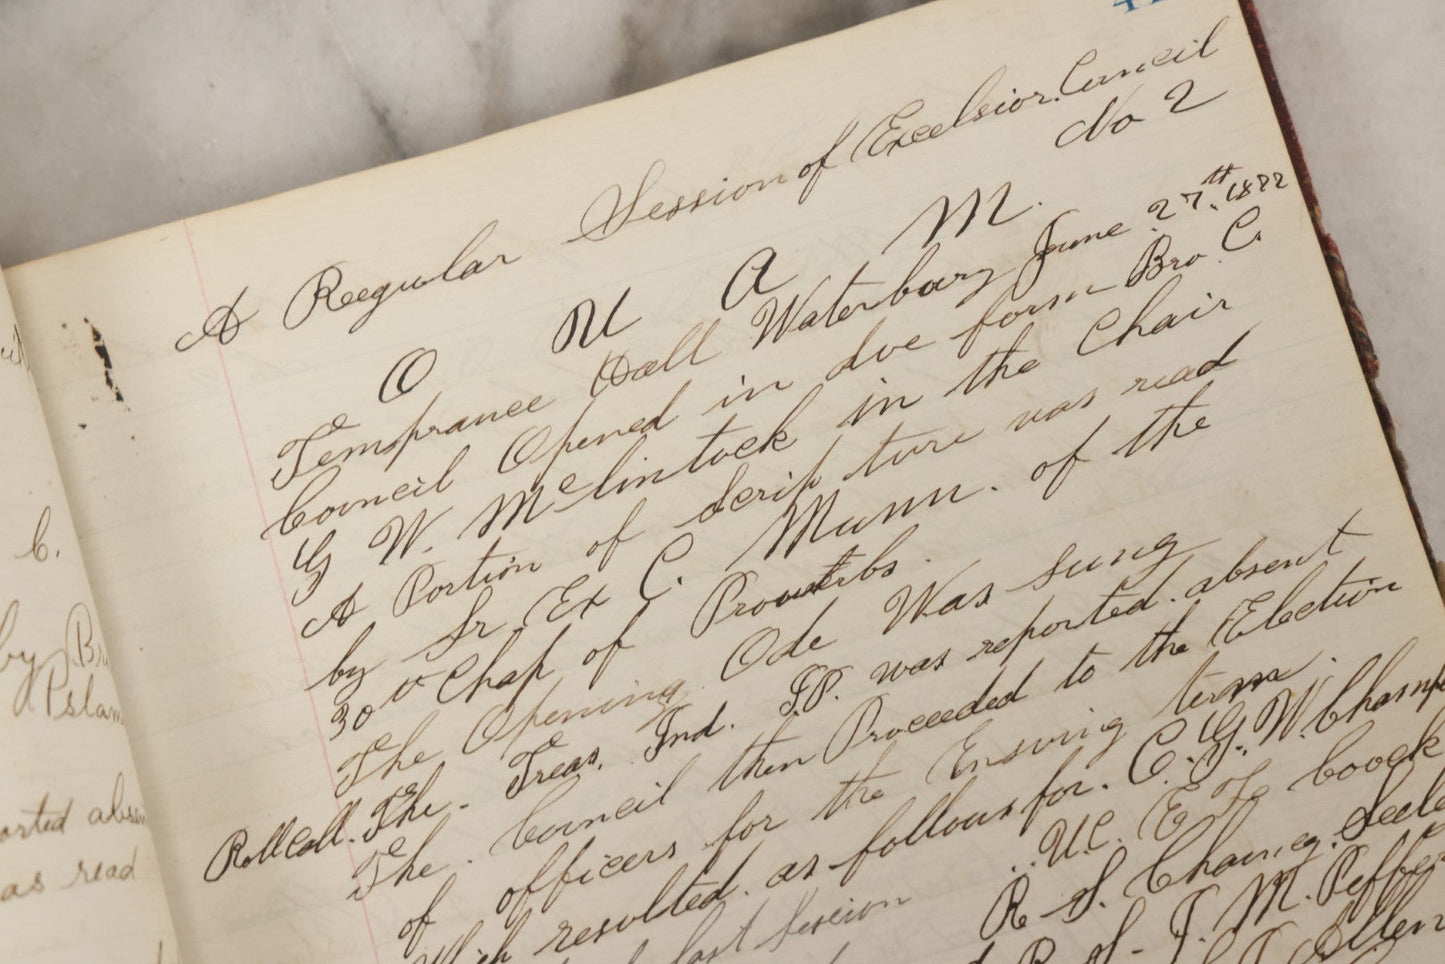 A Reegular Session of Excelsior Council
No 2
O U A M.
Temprance Hall Waterbury June 27.th 1877
Council Opened in due form Bro. C.
G W. McClintock in the Chair
A Portion of Scripture was read
by Sr. Ex C. Munn. of the
30th Chap of Proverbs.
The Opening Ode Was Sung
Roll Call. The Treas. Ind. I.P. was reported absent
The Council then Proceeded to the Election
of officers for the Ensuing term.
Which resulted. as follows for. C. G. W. Champ
last Session V.C. E Couck
R. S. Chancy. Seele
R S. J. M. Peffer
Allen
C.
by Br
orted absen
as read